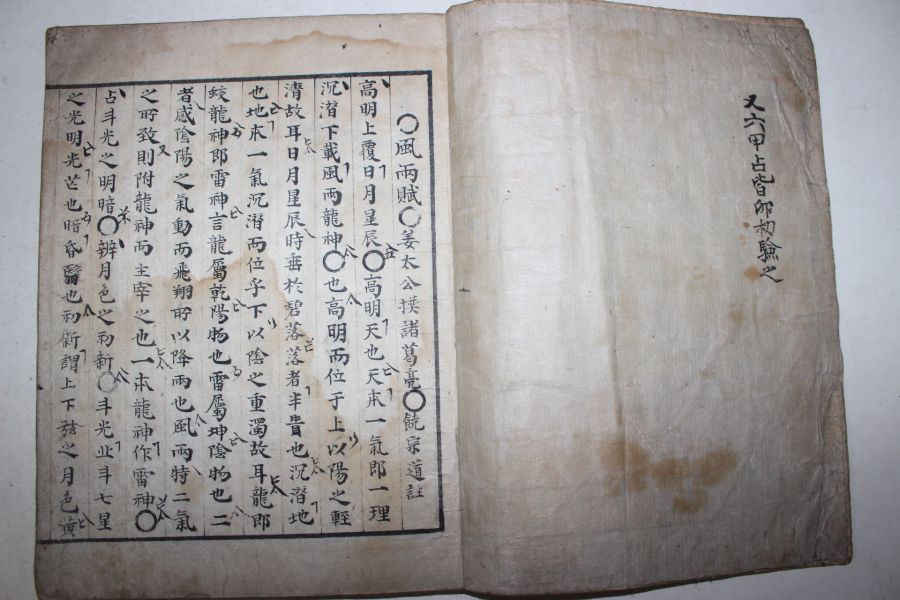 又六甲占皆卯初驗之
○風雨賦○姜太公撰諸葛亮○饒宗道註
高明上覆日月星辰○高明天也天本一氣卽一理
沉潛下載風雨龍神○也高明而位于上以陽之輕
清故耳日月星辰時垂於碧落落者半貴也沉潛地
也地本一氣沉潛而位乎下以陰之重濁故耳龍卽
蛟龍神卽雷神言龍屬乾陽物也雷屬坤陰物也二
者感陰陽之氣動而飛翔所以降雨也風雨特二氣
之所致則附龍神而主宰之也一本龍神作雷神○
占斗光之明暗○辨月色之初新○斗光北斗七星
之光明光芒也暗昏翳也初新謂上下弦之月色黃